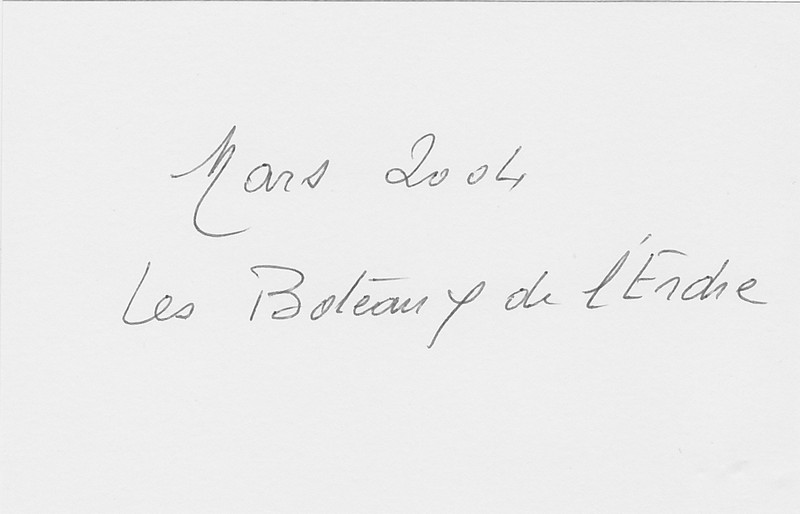 Mars 2004
Les Boteaux de l'Erdre